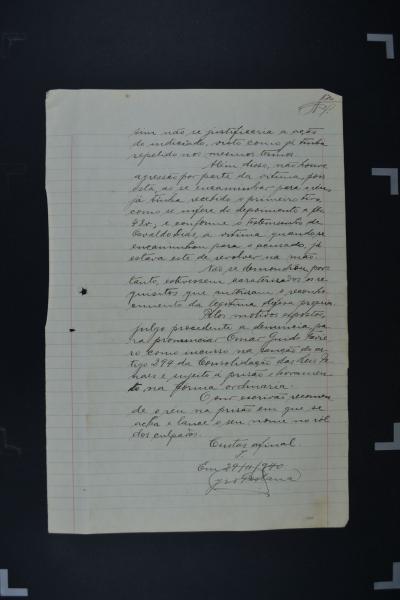 sim não se justificaria a ação
do indiciado, visto como já tinha
repelido nos mesmos termos.
Além disso, não houve
agressão por parte da vitima, pois
esta, ao se encaminhar para o réu,
já tinha recebido o primeiro tiro
como se infere do depoimento a fls
42v, e conforme o testemunho de
Osvaldo Dias, a vitima quando se
encaminhou para o acusado, já
estava este de revolver na mão.
Não se demonstrou, por-
tanto, estivessem caraterizados os re-
quisitos que autorizam o reconhe-
cimento da legitima defesa propria.
Pelos motivos expostos,
julgo procedente a denuncia pa-
ra pronunciar Omar Guido
ro como incurso na sanção do ar-
tigo 294 da Consolidação das Leis Pe-
naes e sujeito a prisão e livramen-
to, na forma ordinaria.
O snr. escrivão recomen-
de o reu na prisão em que se
acha e lance o seu nome no rol
dos culpados.
Custas afinal.
Em 29/11/940